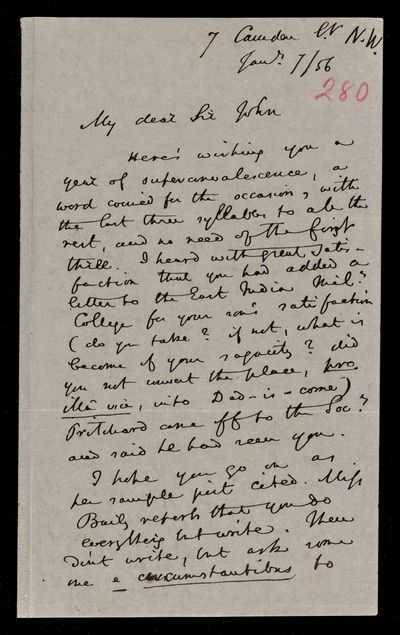 7 Camden St N.W.
Jany 7/56
280
My dear Sir John
Here's wishing you a
year of superconvalescence, a
word coined for the occasion, with
the last three syllables to all the
rest, and no need of the first
three. I heard with great satis-
faction that you had added a
letter to the East India Mil.y
College for your son's satisfaction
(do you take? if not, what is
become of your sagacity? did
you not convert the place, pro
illâ vice, into Dad-is-come)
Pritchard came off to the Soc.y
and said he had seen you.
I hope you go on as
per sample just cited. Miss
Baily reports that you do
everything but write. Then
don't write, but ask some
one e circumstantibus to